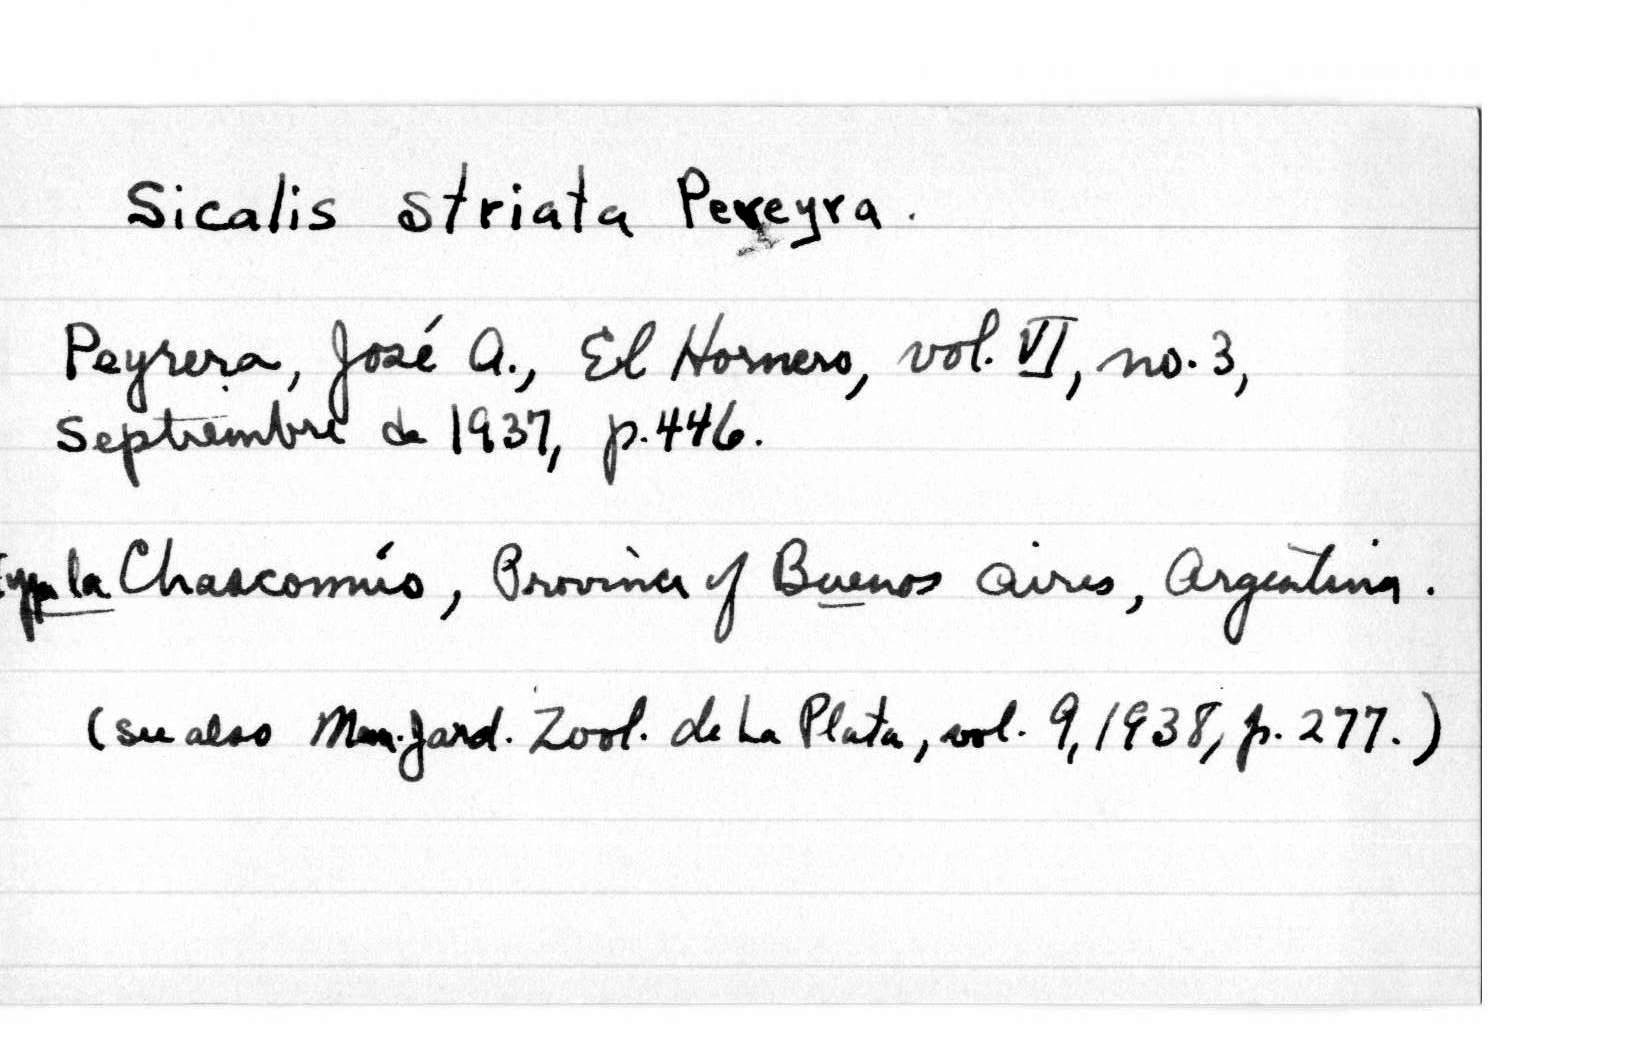 Sicalis striata Pereyra.
Peyrera, José A., El Hornero, vol. VI, no. 3,
Septiembre de 1937, p. 446.
la Chascomúo, Province of Buenos Aires, Argentina.
(see also Mem. Jard. Zool. de La Plata, vol. 9, 1938, p. 277.)